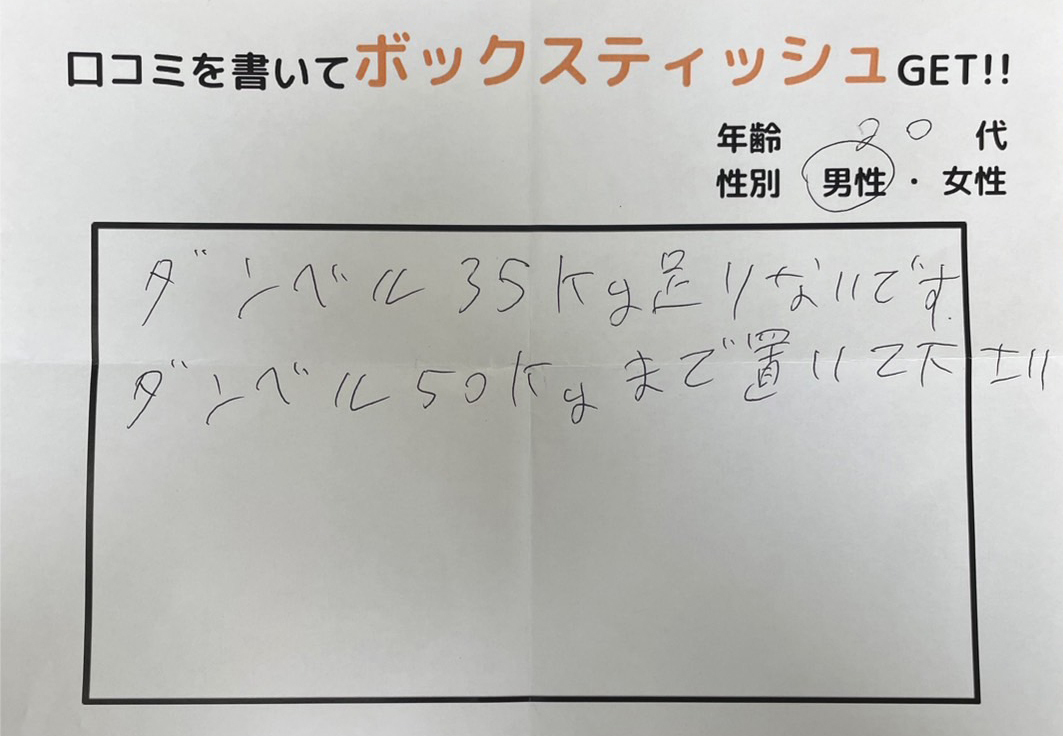 口コミを書いてボックスティッシュGET!!
年齢 20 代
性別 男性・女性
ダンベル35kg足りないです.
ダンベル50kgまで置いて下さい